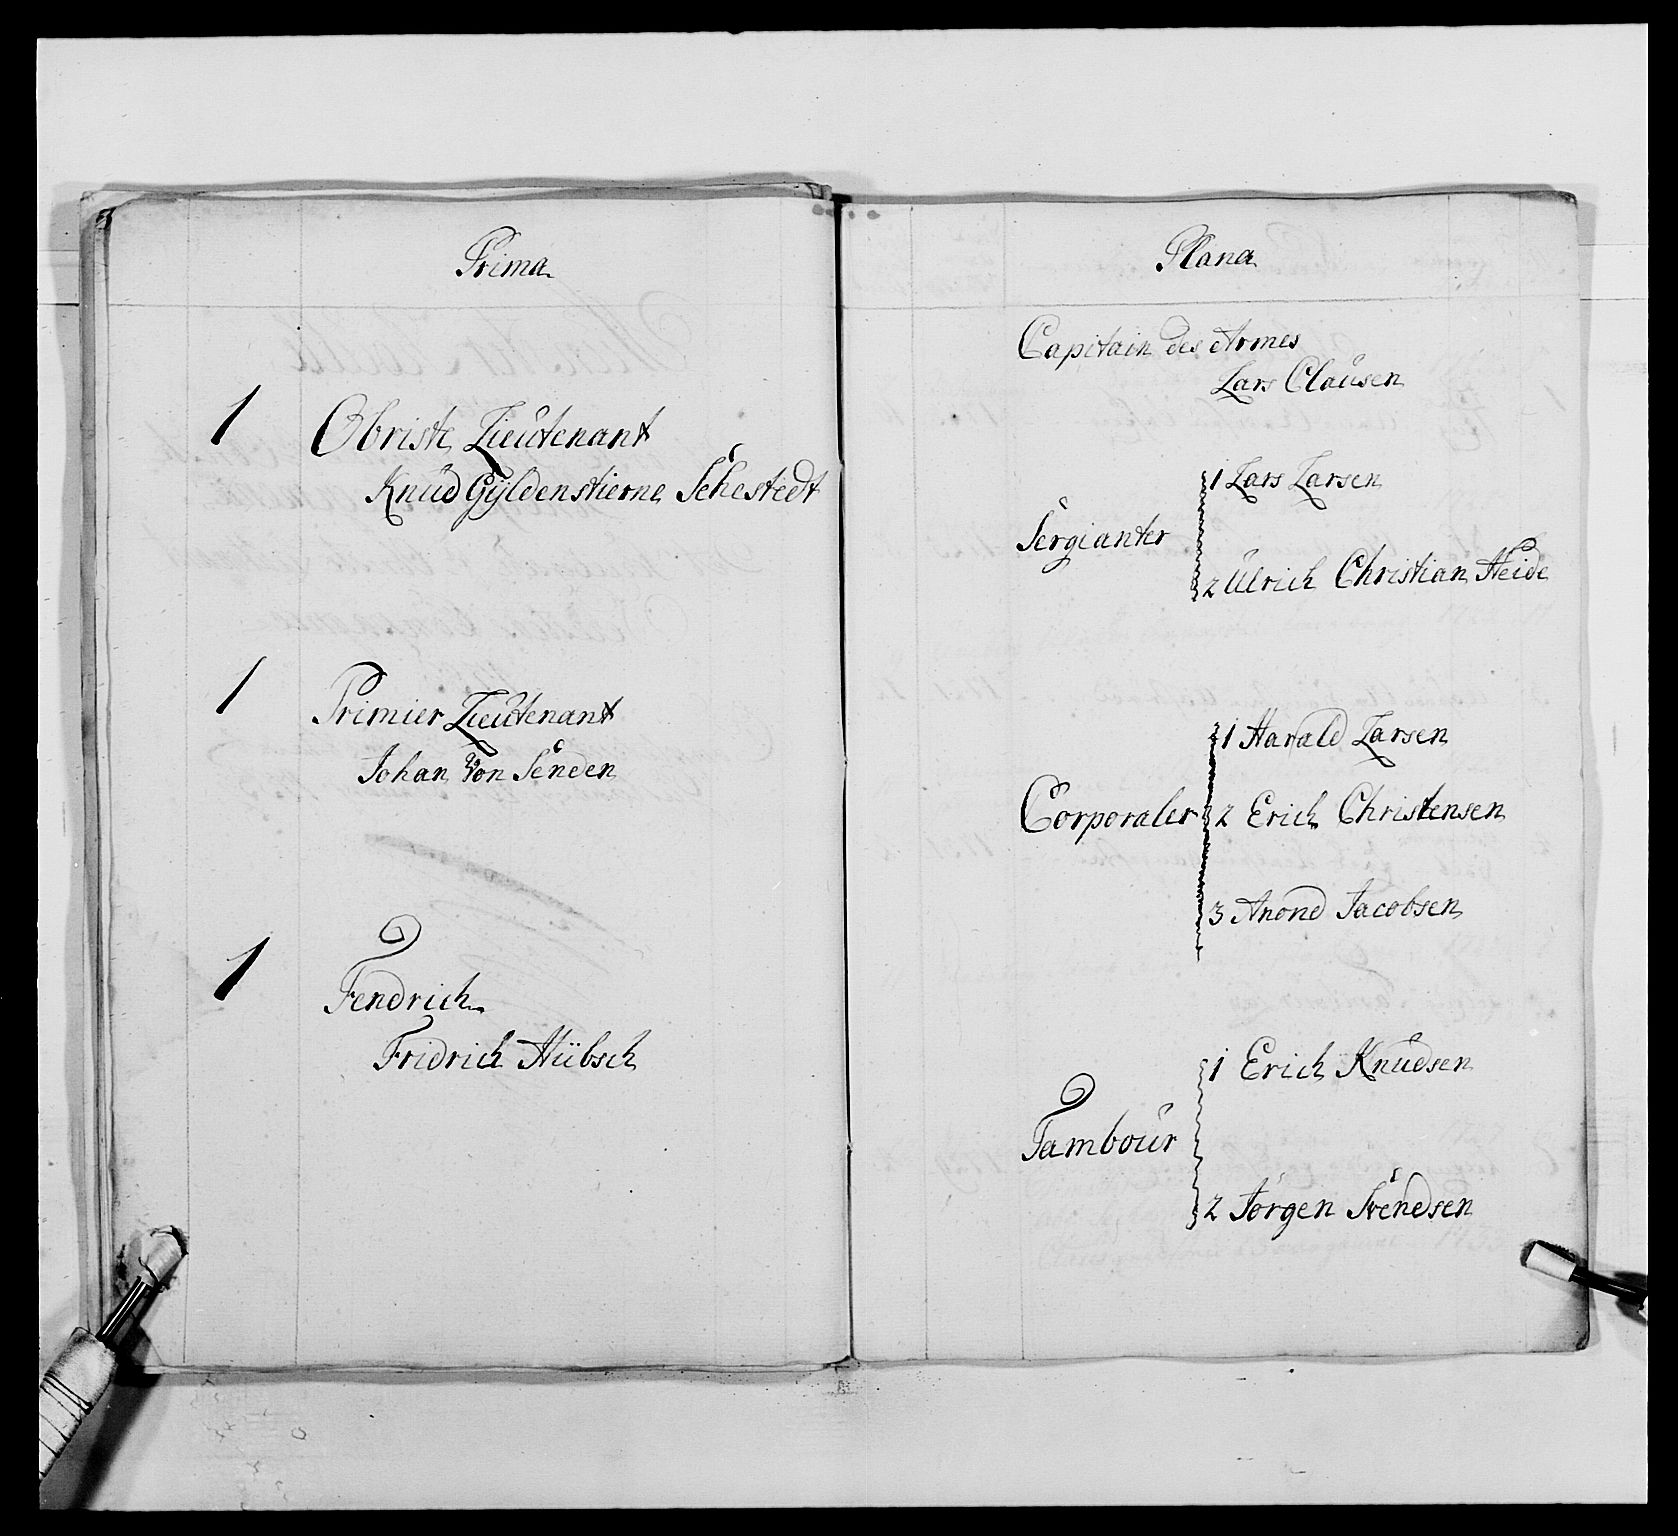 Prima
1 Obriste Lieutenant
Knud Gÿldenstierne Sehestedt
1 Primier Lieutenant
Johan von Senden
1 Fendrich
Fridrich Hübsch
Plana
Capitain des Armes
Lars Clausen
Sergianter
1 Lars Larsen
2 Ulrich Christian Heide
Corporaler
1 Harald Larsen
2 Erich Christensen
3 Anond Jacobsen
Tambour
1 Erich Knudsen
2 Jørgen Svendsen